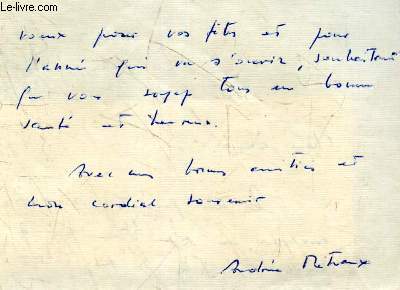 Le-livre.com
voeux pour vos fêtes et pour
l'année qui va s'ouvrir, souhaitant
que vous soyez tous en bonne
santé et heureux.
Avec mes bonnes amitiés et
mon cordial souvenir
Andrée Métraux